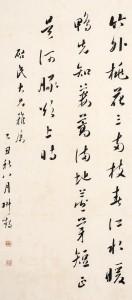 竹外桃花三兩枝春江水暖
鴨先知蔞蒿滿地蘆芽短正
是河豚欲上時
民大兄雅屬
乙丑秋八月